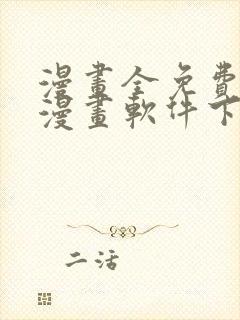 漫畫全免費
漫畫軟件下
二活